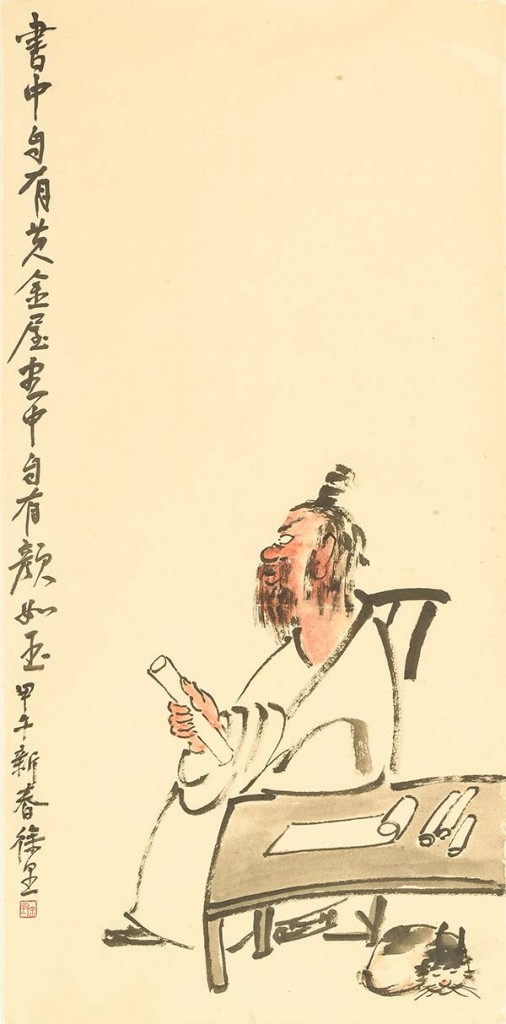 書中自有黄金屋畫中自有顏如玉甲午新春徐里